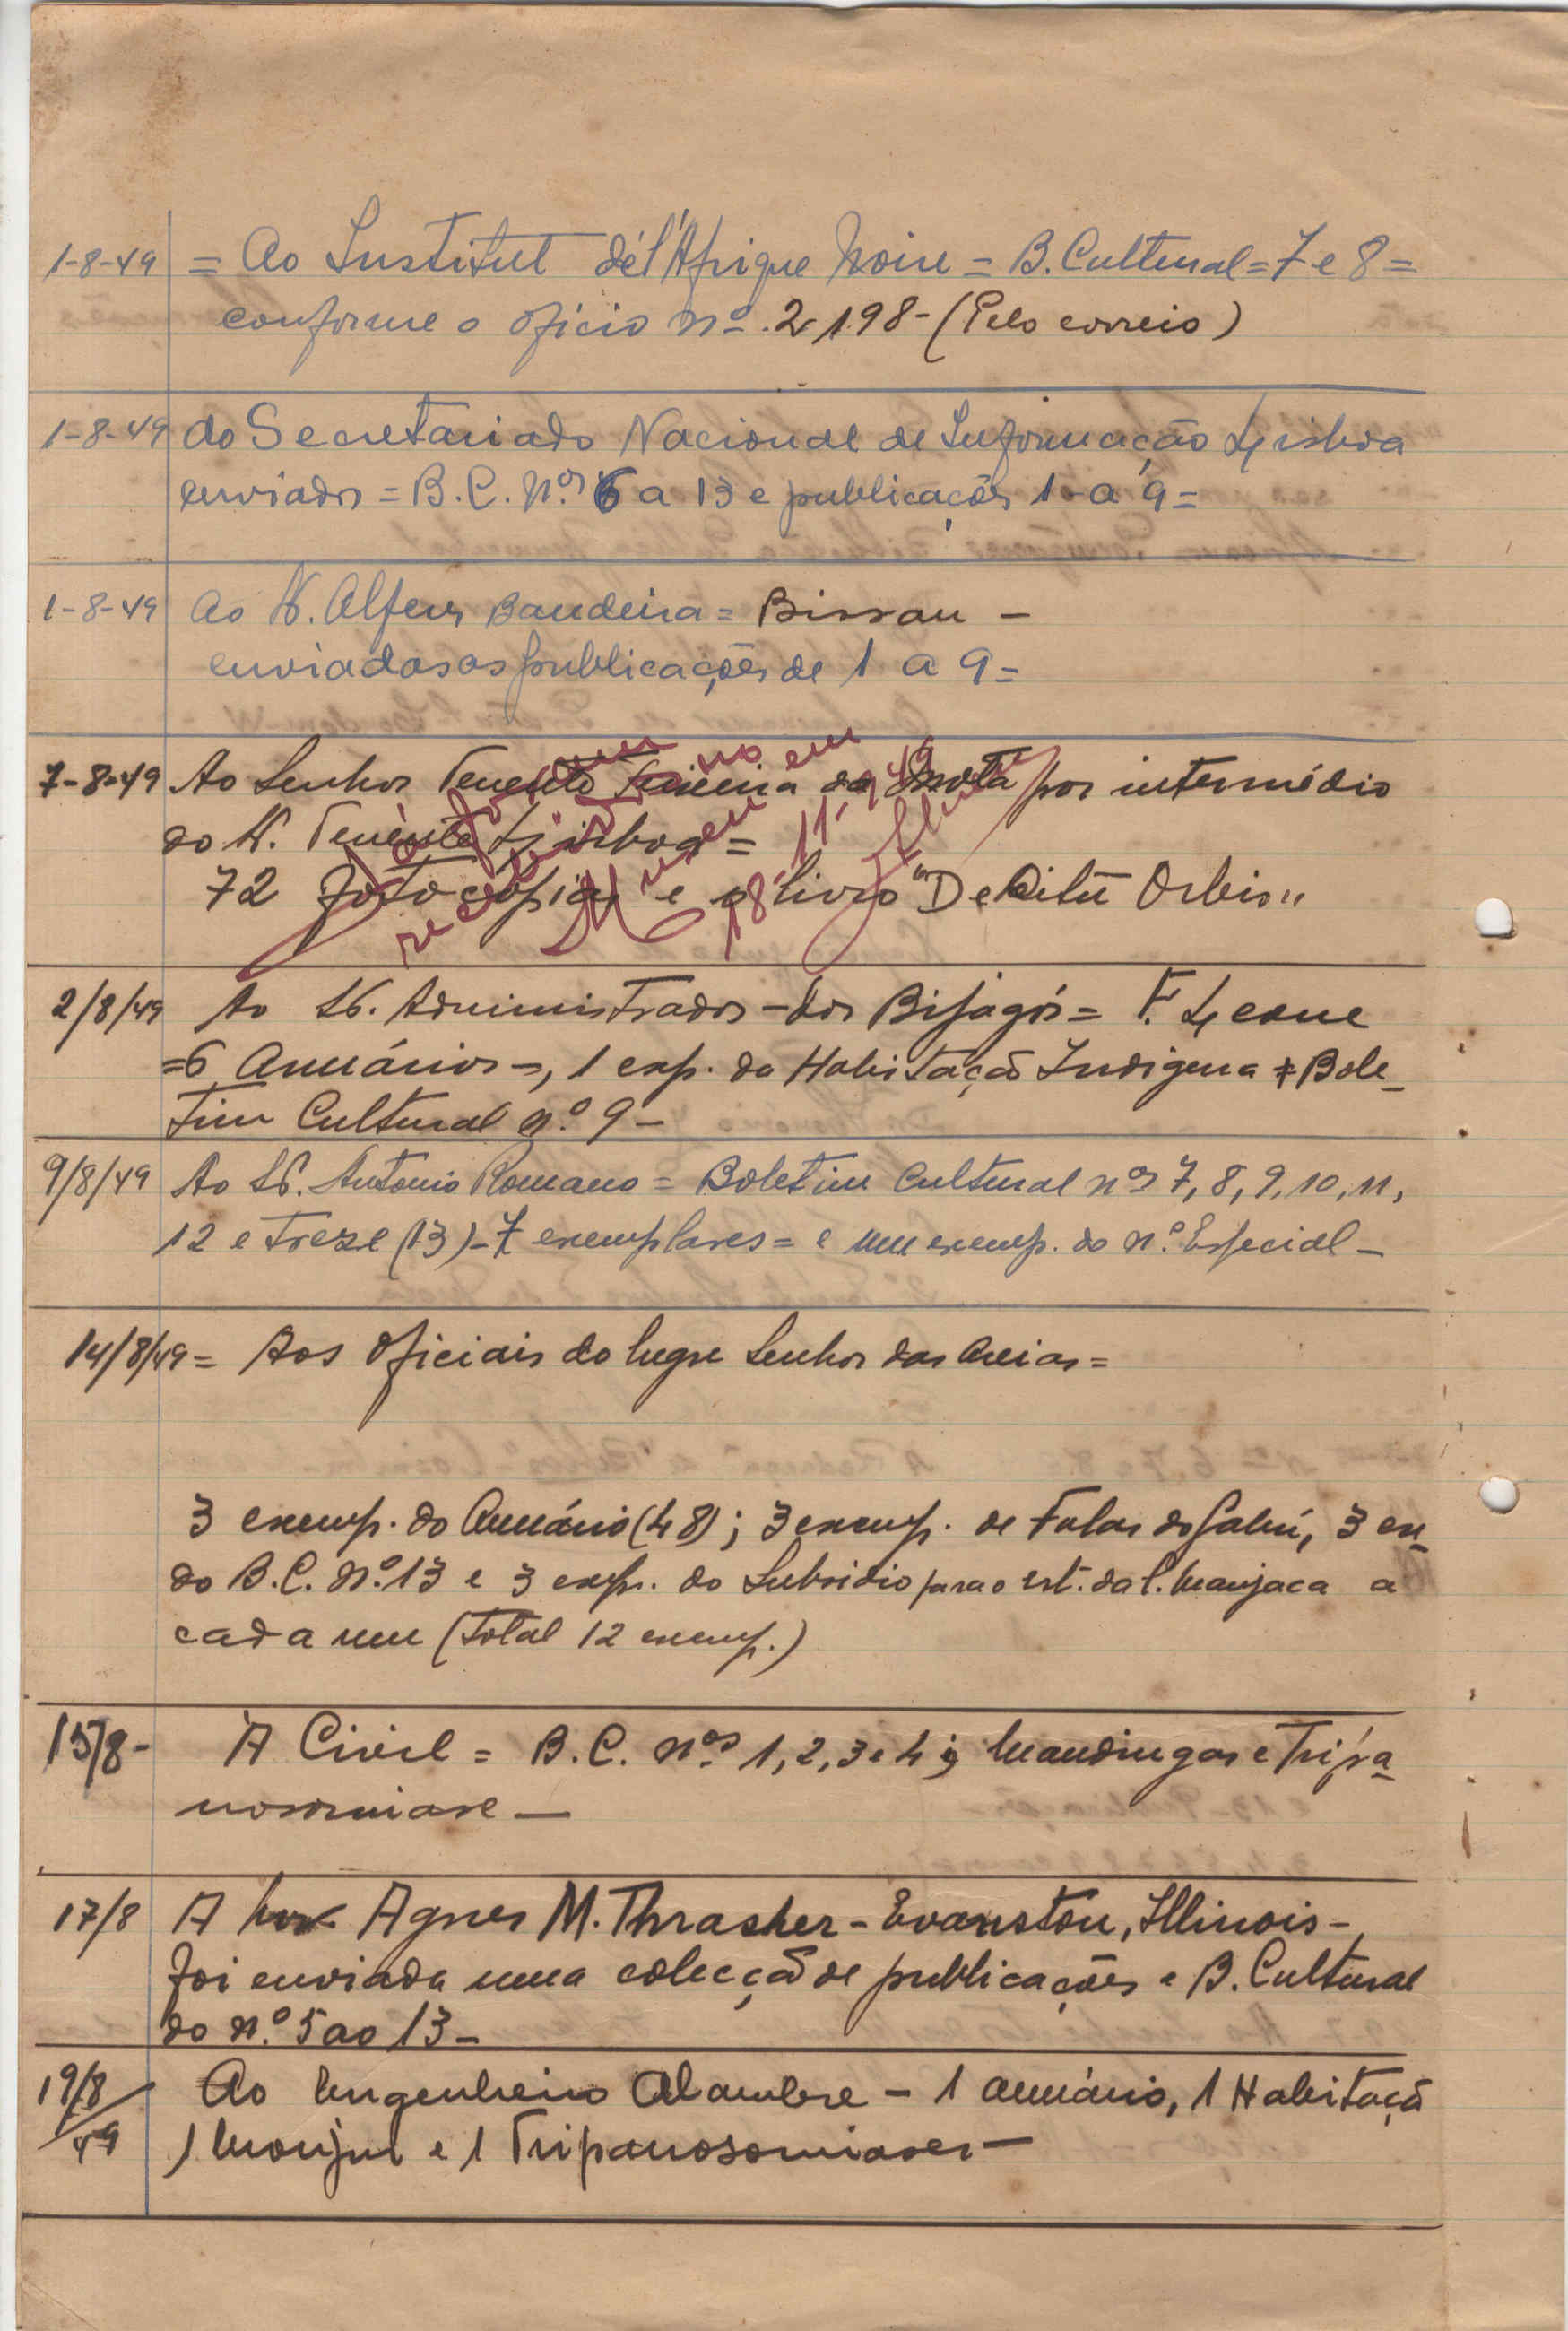 1-8-49 = Ao Institut dél'Afrique Noire = B. Cultural = 7 e 8 =
conforme o ofício nº. 2198 - (Pelo correio)
1-8-49 Ao Secretariado Nacional de Informação Lisboa
enviados = B. C. Nºs 6 a 13 e publicações 1 - a 9 =
1-8-49 Ao Sr. Alferes Bandeira = Bissau -
enviadas as publicações de 1 a 9 =
7-8-49 Ao Senhor Tenente Teixeira da Mota por intermédio
do Sr. Tenente Lisboa =
72 fotocópias e o livro "De Situ Orbis"
Já foram
recebidos no
Museu em
18-11-949
2/8/49 Ao Sr. Administrador - dos Bijagós = F. Leone
= 6 Anuários =, 1 exp. da Habitação Indígena + Bole-
tim Cultural nº. 9 -
9/8/49 Ao Sr. António Romano = Boletim Cultural nºs 7, 8, 9, 10, 11,
12 e treze (13) - 7 exemplares = e um exemp. do nº. Especial -
14/8/49 = Aos oficiais do lugre Senhor das Areias =
3 exemp. do Anuário (48); 3 exemp. de Fulas do Gabú, 3 ex-
do B. C. Nº. 13 e 3 exp. do Subsídio para o est. da l. Manjaca a
cada um (Total 12 exemp.)
15/8 - À Civil = B. C. nºs. 1, 2, 3 e 4; Mandingas e Tripa-
nosomiase -
17/8 A Agnes M. Thrasher - Evanston, Illinois -
foi enviada uma colecçã de publicações e B. Cultural
do nº. 5 ao 13 -
19/8/49 Ao Engenheiro Alambre - 1 anuário, 1 Habitaçã
1 e 1 Tripanosomiases -